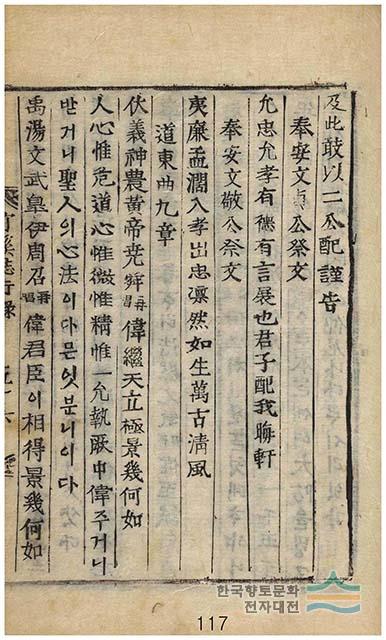 及此敢以二公配謹告
奉安文貞公祭文
允忠允孝有德有言展也君子配我晦軒
奉安文敬公祭文
夷廉孟濶入孝出忠凛然如生萬古淸風
道東曲九章
伏羲神農黃帝堯舜 再唱 偉繼天立極景幾何如
人心惟危道心惟微惟精惟一允執厥中偉주거니
받거니聖人의心法이다믄잇분니이다
禹湯文武皐伊周召 再唱 偉君臣이相得景幾何如
한국향토문화
전자대전
117